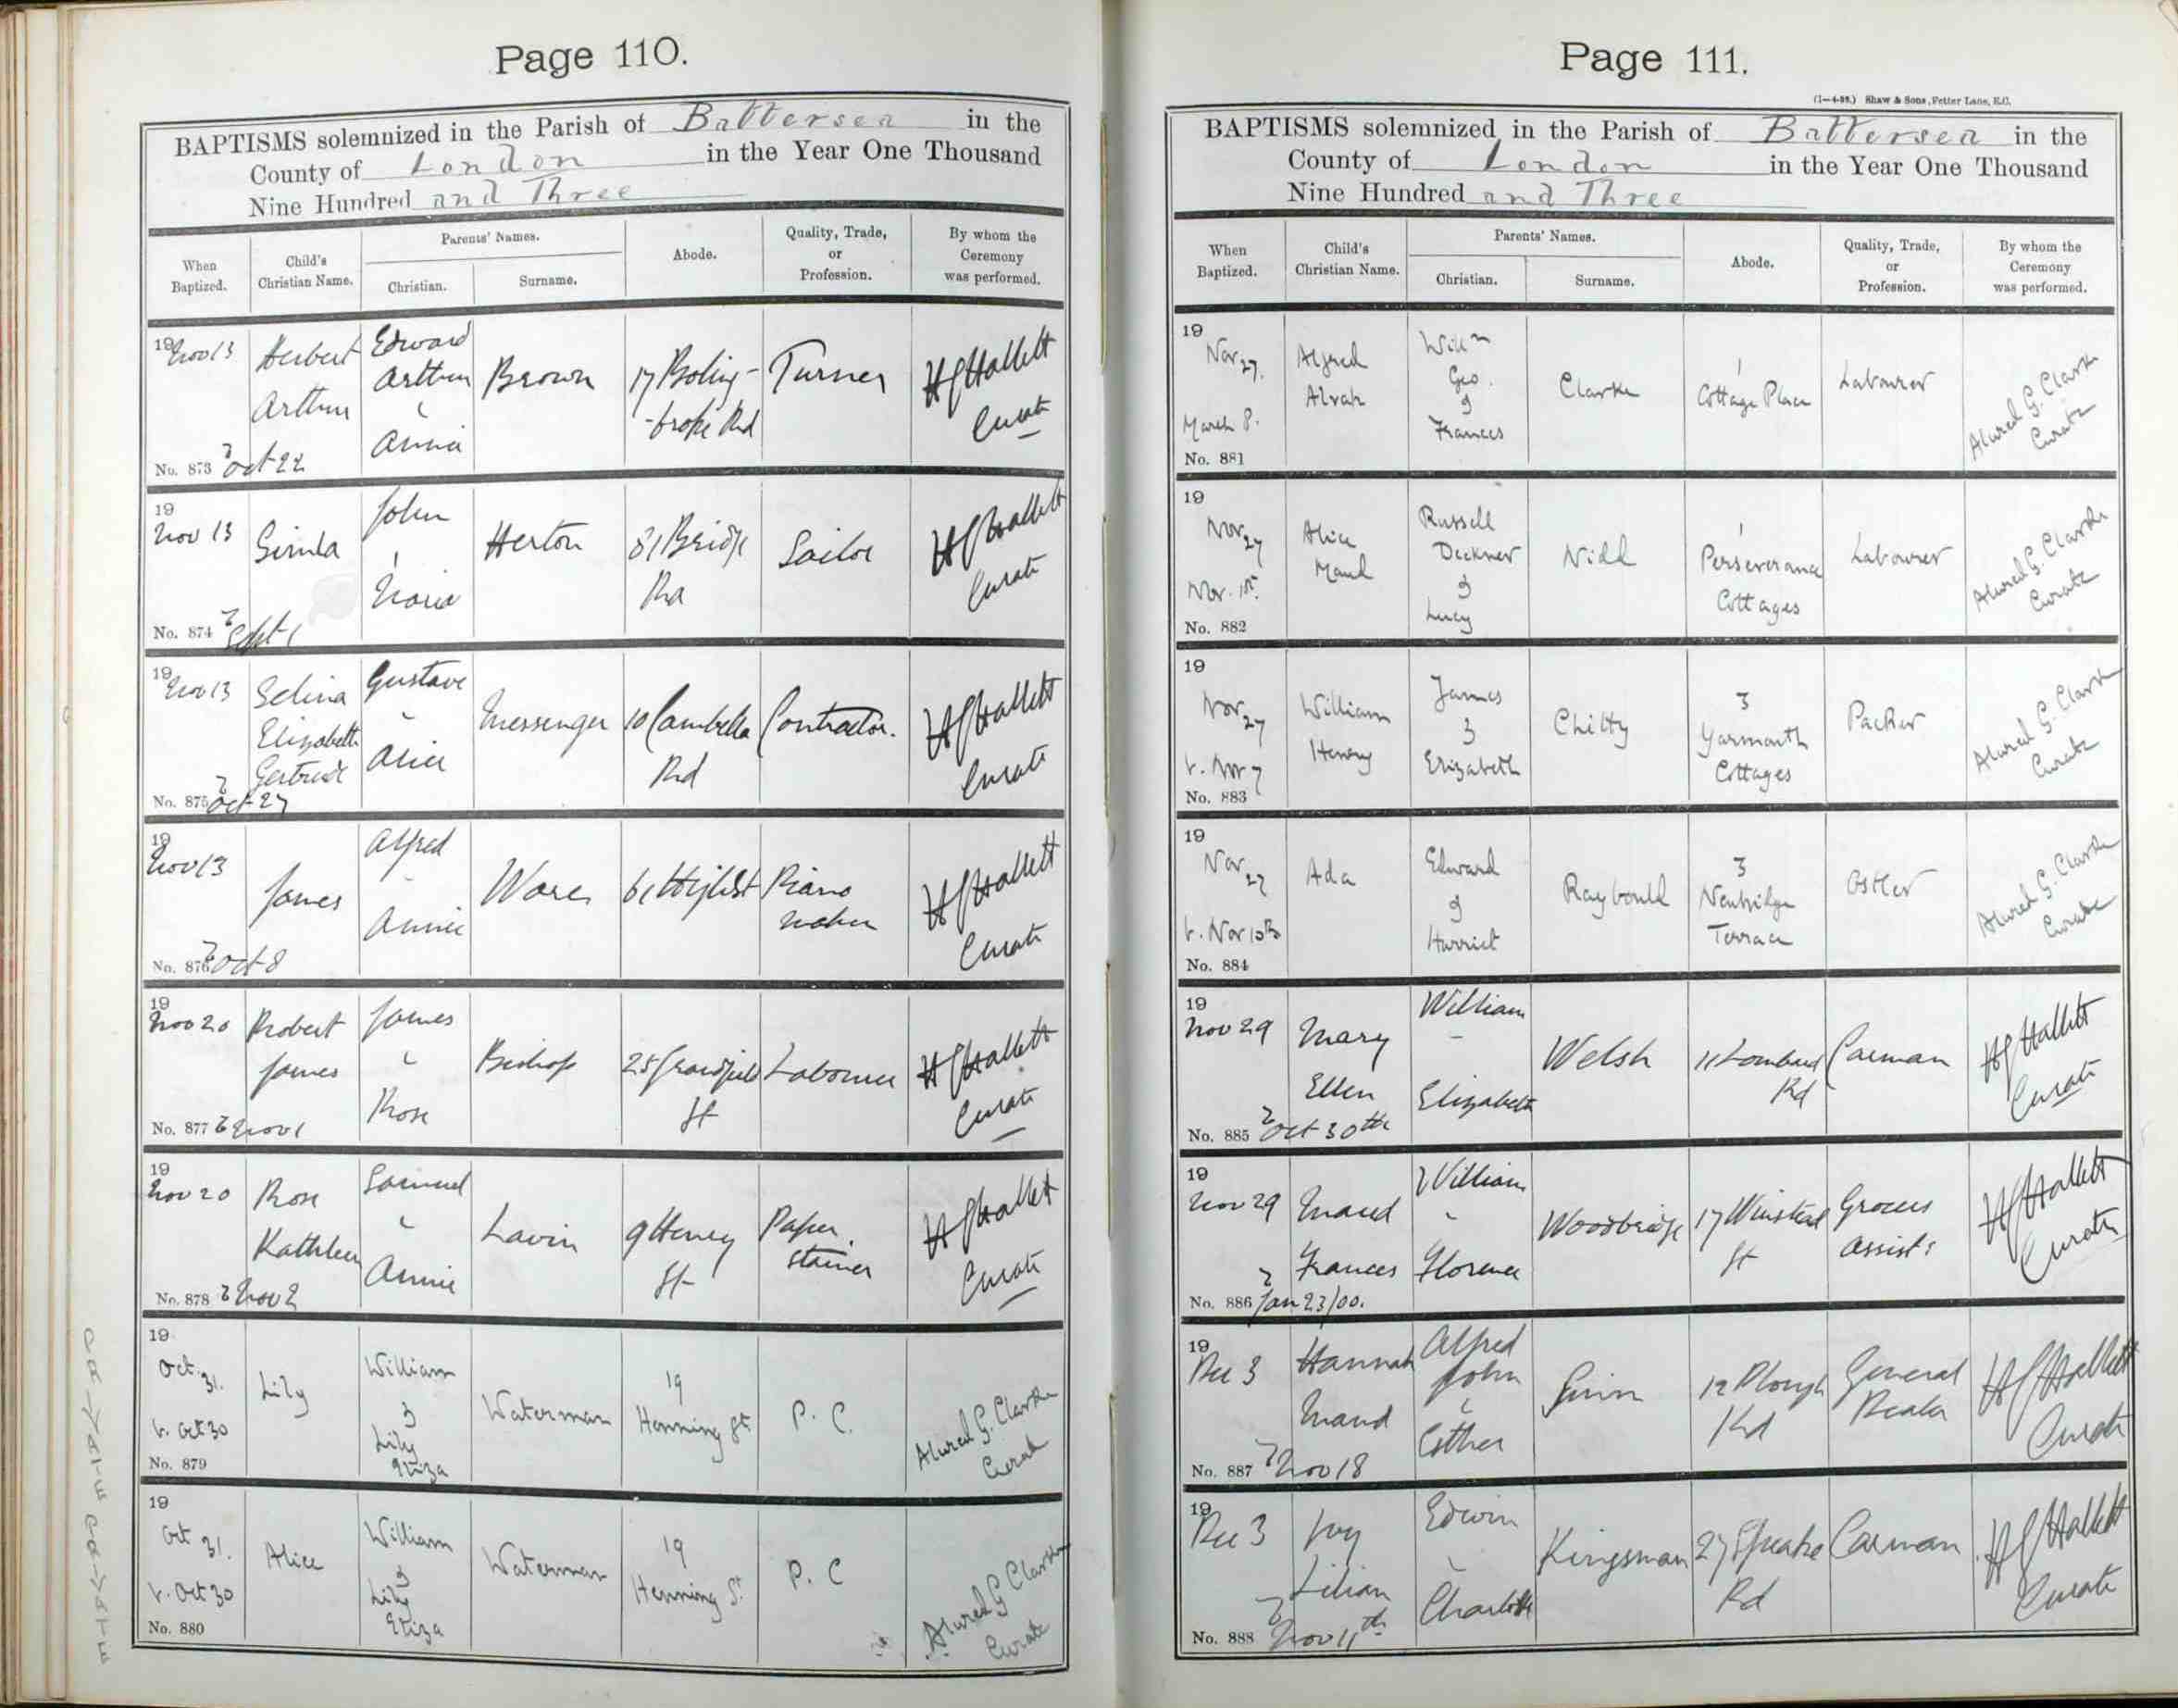 Page 110.
BAPTISMS solemnized in the Parish of Battersea in the
County of London in the Year One Thousand
Nine Hundred and Three
When Baptized.
Child's Christian Name.
Parents' Names.
Christian.
Surname.
Abode.
Quality, Trade, or Profession.
By whom the Ceremony was performed.
19 Nov 13
Herbert
Arthur
Edward
Arthur
Annie
Brown
17 Boling-
-broke Rd
Turner
H G Hallett
Curate
No. 873 Oct 22
19
Nov 13
John
Herton
81 Bridge
Rd
Sailor
H G Hallett
Curate
No. 874 Sept 1
19 Nov 13
Selina
Elizabeth
Gertrude
Gustave
Alice
Messenger
10 Cambella
Rd
Contractor.
H G Hallett
Curate
No. 875 Oct 27
19
Nov 13
James
Alfred
Annie
Wares
61 High St
Piano
maker
H G Hallett
Curate
No. 876 Oct 8
19
Nov 20
Robert
James
James
Rose
Bishop
St
Labourer
H G Hallett
Curate
No. 877 b Nov 1
19
Nov 20
Rose
Kathleen
Samuel
Annie
Lavin
9 Henry
St
Paper
Stainer
H G Hallett
Curate
No. 878 b Nov 2
19
Oct. 31.
b. Oct 30
Lily
William
&
Lily
Eliza
Waterman
19
Henning St.
P. C.
Alured G. Clarke
Curate
No. 879
19
Oct 31.
b. Oct 30
Alice
William
&
Lily
Eliza
Waterman
19
Henning St.
P. C
Alured G Clarke
Curate
No. 880
Page 111.
(1—4-98.) Shaw & Sons, Fetter Lane, E.C.
BAPTISMS solemnized in the Parish of Battersea in the
County of London in the Year One Thousand
Nine Hundred and Three
When Baptized.
Child's Christian Name.
Parents' Names.
Christian.
Surname.
Abode.
Quality, Trade, or Profession.
By whom the Ceremony was performed.
19
Nov 27.
March 8.
Alfred
Alvah
Willm
Geo.
&
Frances
Clarke
1
Cottage Place
Labourer
Alured G. Clarke
Curate
No. 881
19
Nov 27
Nov. 1st.
Alice
Maud
Russell
&
Lucy
Nidd
1
Perseverance
Cottages
Labourer
Alured G. Clarke
Curate
No. 882
19
Nov 27
b. Nov 7
William
Henry
James
&
Elizabeth
Chitty
3
Yarmouth
Cottages
Packer
Alured G. Clarke
Curate
No. 883
19
Nov 27
b. Nov 10th
Ada
Edward
&
Harriet
Raybould
3
Newbridge
Terrace
Ostler
Alured G. Clarke
Curate
No. 884
19
Nov 29
Mary
Ellen
William
Elizabeth
Welsh
11 Lombard
Rd
Carman
H G Hallett
Curate
No. 885 Oct 30th
19
Nov 29
Maud
Frances
William
Florence
Woodbridge
17 Winstead
St
Grocers
Assist:
H G Hallett
Curate
No. 886 Jan 23/00.
19
Dec 3
Hannah
Maud
Alfred
John
Esther
Ginn
12 Plough
Rd
General
Dealer
H G Hallett
Curate
No. 887 Nov 18
19
Dec 3
Ivy
Lilian
Edwin
Charlotte
Kingsman
27 Speake
Rd
Carman
H G Hallett
Curate
No. 888 Nov 11th